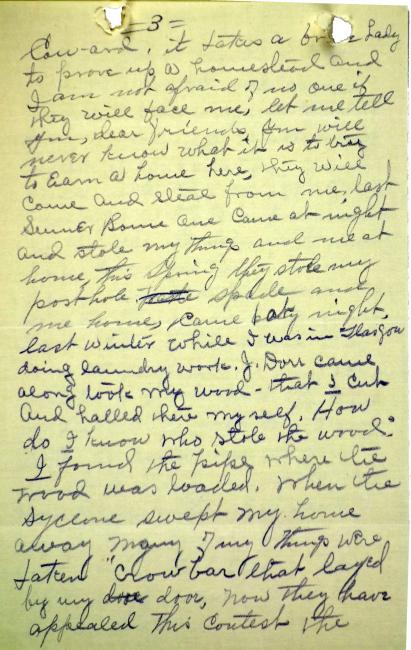 -3=
Cow-ard, it takes a brave Lady
to prove up a homestead and
I am not afraid of no one if
they will face me, let me tell
you, dear friends you will
never know what it is to try
to Earn a home here, they will
come and steal from me, last
Summer Some one came at night
and stole my things and me at
home, this Spring they stole my
post hole spade and
me home, came at night,
last winter while I was in Glasgow
doing laundry work. J. Dorr came
along took my wood - that I cut
and halled there my self. How
do I know who stole the wood.
I found the pipe where the
wood was loaded. When the
Syclone swept my home
away many of my things were
taken "Crowbar that layed
by my door, now they have
appealed this contest the